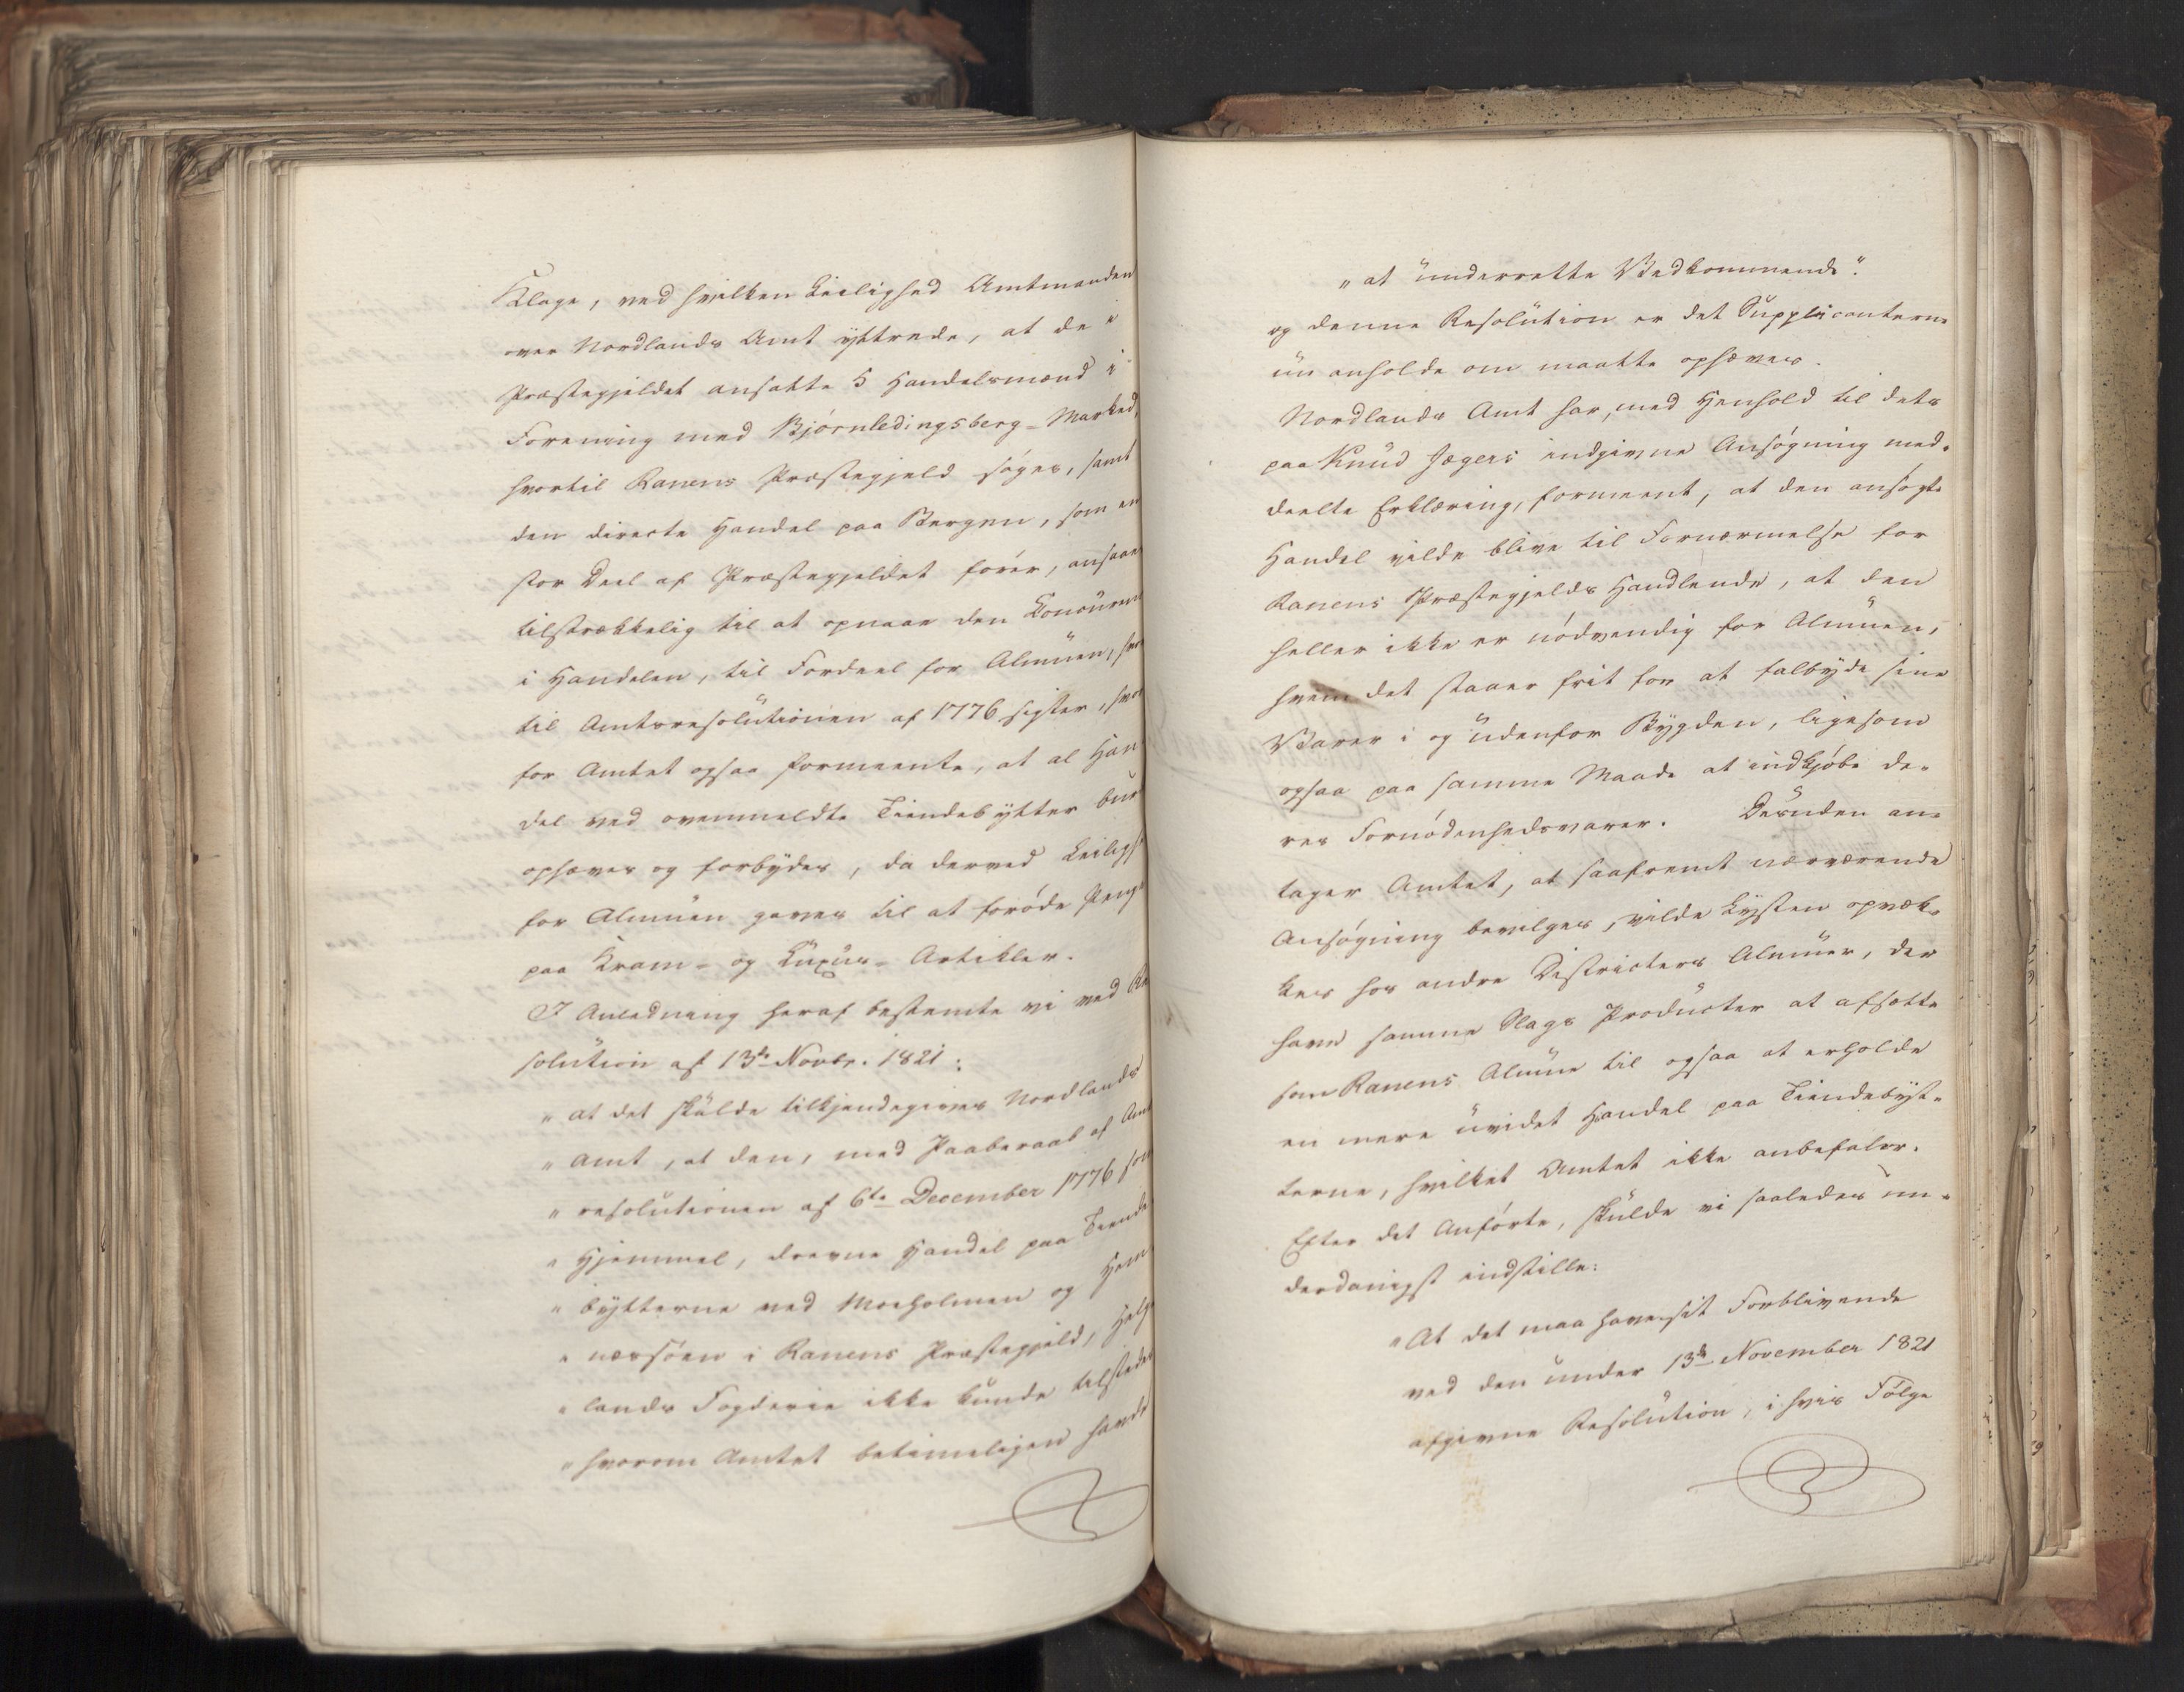 Klage, ved hvilken Leilighed Amtmanden
over Nordlands Amt yttrede, at de i
Præstegjeldet ansatte 5 Handelsmænd i
Forening med Bjørnledingsberg-Marked,
hvortil Ranens Præstegjeld søger, samt
den directe Handel paa Bergen, som en
stor Deel af Præstegjeldet fører, ansaaes
tilstrækkelig til at opnaae den Concurren
i Handelen, til Fordeel for Almuen, hvor
til Amtsresolutionen af 1776 sigter, hvor
for Amtet ogsaa formeente, at al Han
del ved ovenmeldte Tiendebytter bur
ophæves og forbydes, da derved Leiligh
for Almuen gaves til at forøde Penge
paa Kram- og Luxus-Artikler.
I Anledning heraf bestemte vi ved Re
solution af 13de Novbr. 1821:
"at det skulde tilkjendegives Nordlands
"Amt, at den, med Paaberaab af Amts
"resolutionen af 6te December 1776 som
"Hjemmel, drevne Handel paa Tiende
"bytterne ved Moeholmen og Hem
"nersøen i Ranens Præstegjeld, Helge
"lands Fogderie ikke kunde tilstedes
"hvorom Amtet betimeligen havde
"at underrette Vedkommende".
og denne Resolution er det Supplicanterne
nu anholde om maatte ophæves.
Nordlands Amt har, med Henhold til dets
paa Knud Jægers indgivne Ansøgning med-
deelte Erklæring, formeent, at den ansøgte
Handel vilde blive til Fornærmelse for
Ranens Præstegjelds Handlende, at den
heller ikke er nødvendig for Almuen,
hvem det staaer frit for at falbyde sine
Varer i og udenfor Bygden, ligesom
ogsaa paa samme Maade at indkjøbe de-
res Fornødenhedsvarer. Desuden an-
tager Amtet, at saafremt nærværende
Ansøgning bevilges, vilde Lysten opvæk-
kes hos andre Districters Almuer, der
have samme Slags Producter at afsætte
som Ranens Almue til ogsaa at erholde
en mere uvidet Handel paa Tiendebyt-
terne, hvilket Amtet ikke anbefaler.
Efter det Anførte, skulde vi saaledes un-
derdanigst indstille:
"At det maa have sit Forblivende
ved den under 13de November 1821
afgivne Resolution, i hvis Følge